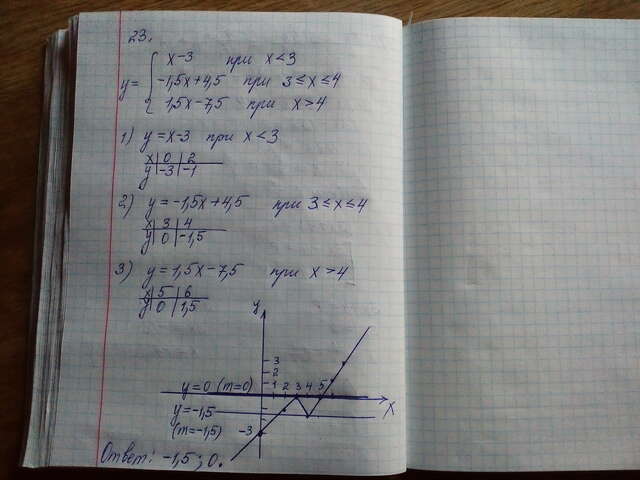 23.
y = { x-3 при x<3
-1,5x+4,5 при 3≤x≤4
1,5x-7,5 при x>4
1) y=x-3 при x<3
x | 0 | 2
y | -3 | -1
2) y=-1,5x+4,5 при 3≤x≤4
x | 3 | 4
y | 0 | -1,5
3) y=1,5x-7,5 при x>4
x | 5 | 6
y | 0 | 1,5
y
3
2
1
y=0 (m=0) 1 2 3 4 5
x
y=-1,5
(m=-1,5) -3
Ответ: -1,5; 0.